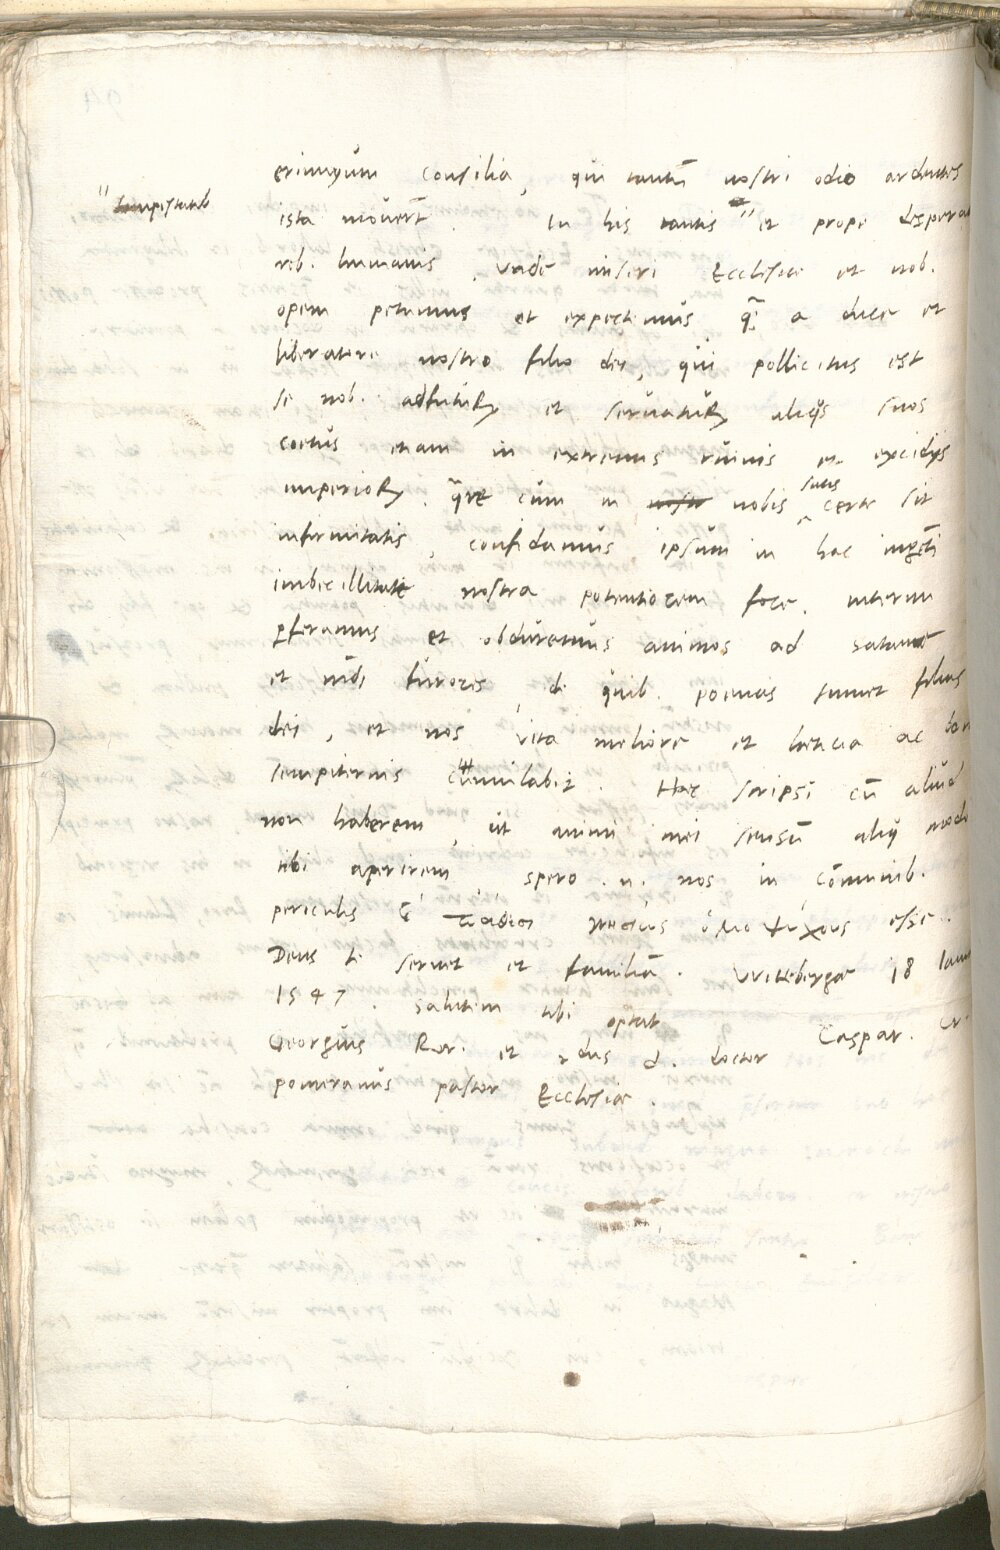 erinnyum consilia, qui tantũ nostri odio ardentes
" tempestatib
ista movert̃. In his tantis " et prope desperat
reb. humanis, vnde miseri Ecclesiae et nob.
opem petemus et expectemus q̃ a duce et
liberatore nostro filio dei, qui pollicitus est
se nob. adfuturꝝ et servaturꝝ aliq̃s suos
coetus etiam in extremis ruinis et excidijs
imperiorꝝ. q̃re cum in nobis satis certe sit
infirmitatis, confidamus ipsum in hac ingẽti
imbecillitate nostra potentiorem fore. interim
ꝑferamus et obduremus animos ad satanae
et mũdi furores, de quib. poenas sumet filius
dei, et nos vita meliore et laeticia ac bon
sempiternis cumulabit. Haec scripsi cũ aliud
non haberem, ut animi mei sensũ aliq̃ modo
tibi aperirem, spero .n. nos in cõmunib.
periculis esse.
Deus te servet et familiã. Vvitebergae 18 Ianu
1547. Salutem tibi optat
Georgius Ror. et dus d. doctor Caspar. Cr.
pomeranus pastor Ecclesiae.